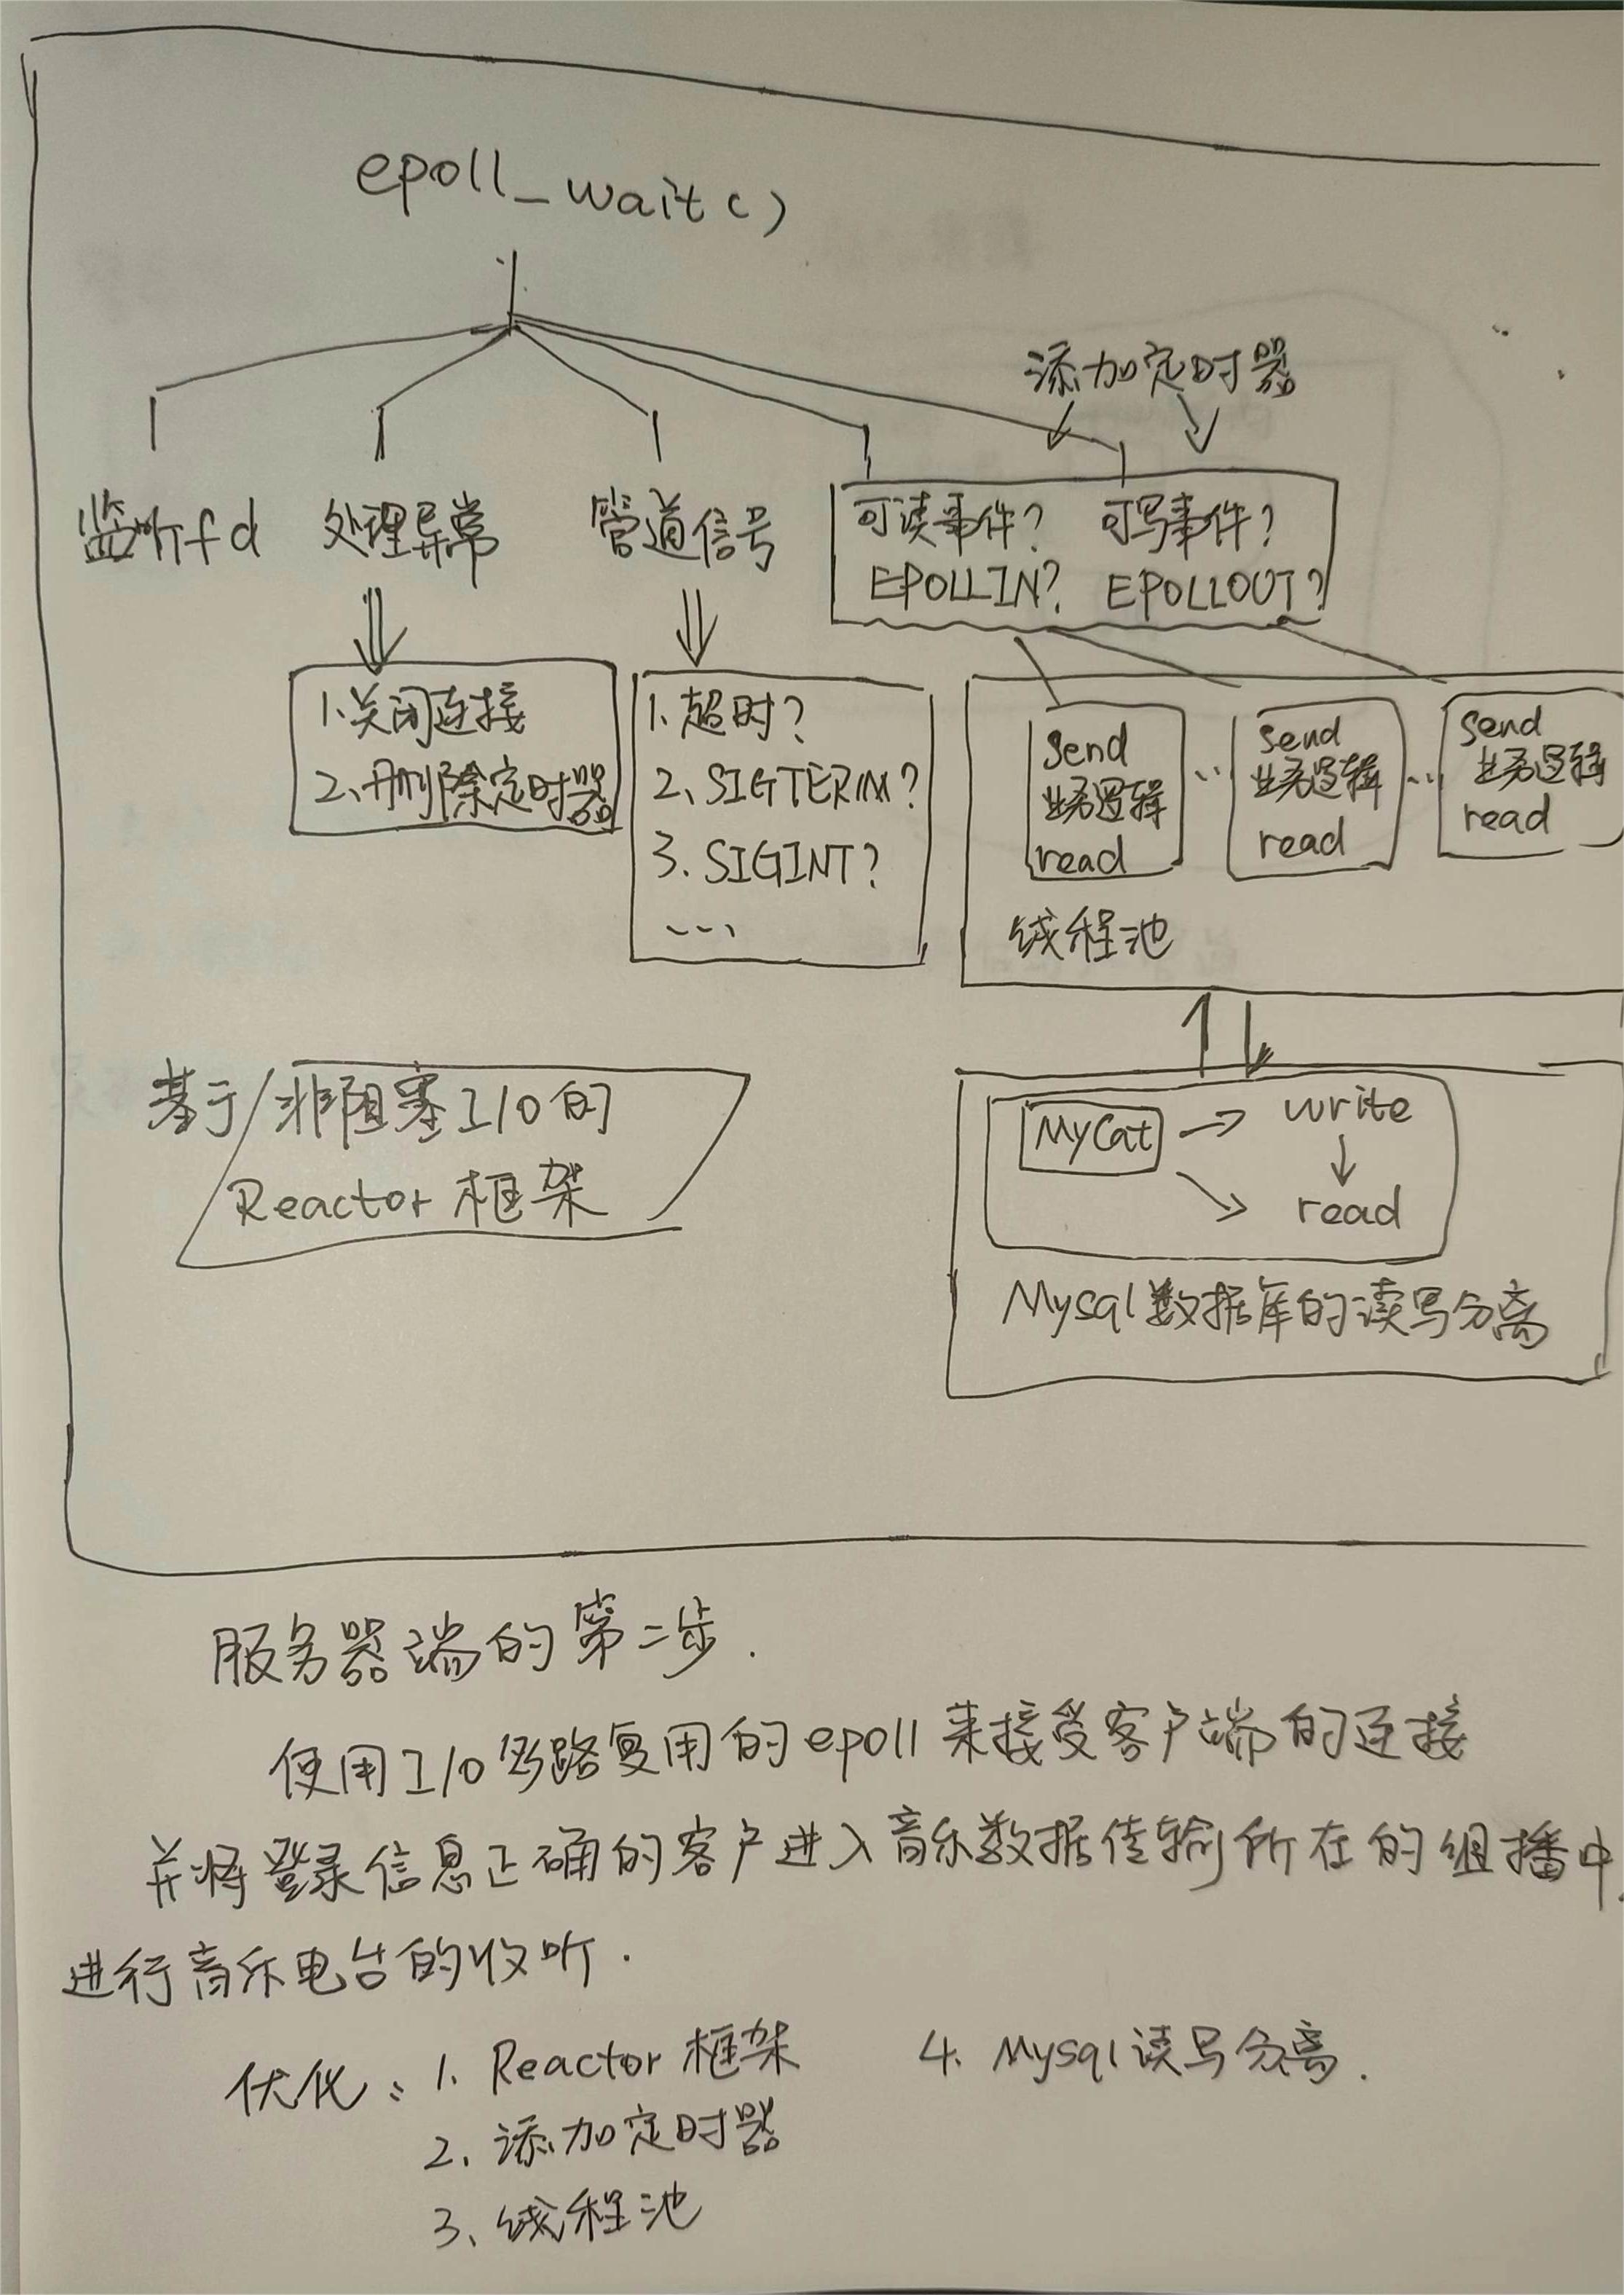 epoll_wait()
添加定时器
监听fd 处理异常 管道信号 可读事件? 可写事件?
EPOLLIN? EPOLLOUT?
1.关闭连接
2、删除定时器
1.超时?
2、SIGTERM?
3.SIGINT?
...
send
业务逻辑
read
...
send
业务逻辑
read
...
send
业务逻辑
read
线程池
基于非阻塞I/O的
Reactor 框架
MyCat → write
↓
read
Mysql数据库的读写分离
服务器端的第二步.
使用I/O多路复用的epoll来接受客户端的连接
并将登录信息正确的客户进入音乐数据传输所在的组播中,
进行音乐电台的收听.
优化: 1. Reactor 框架 4. Mysql读写分离.
2. 添加定时器
3、线程池